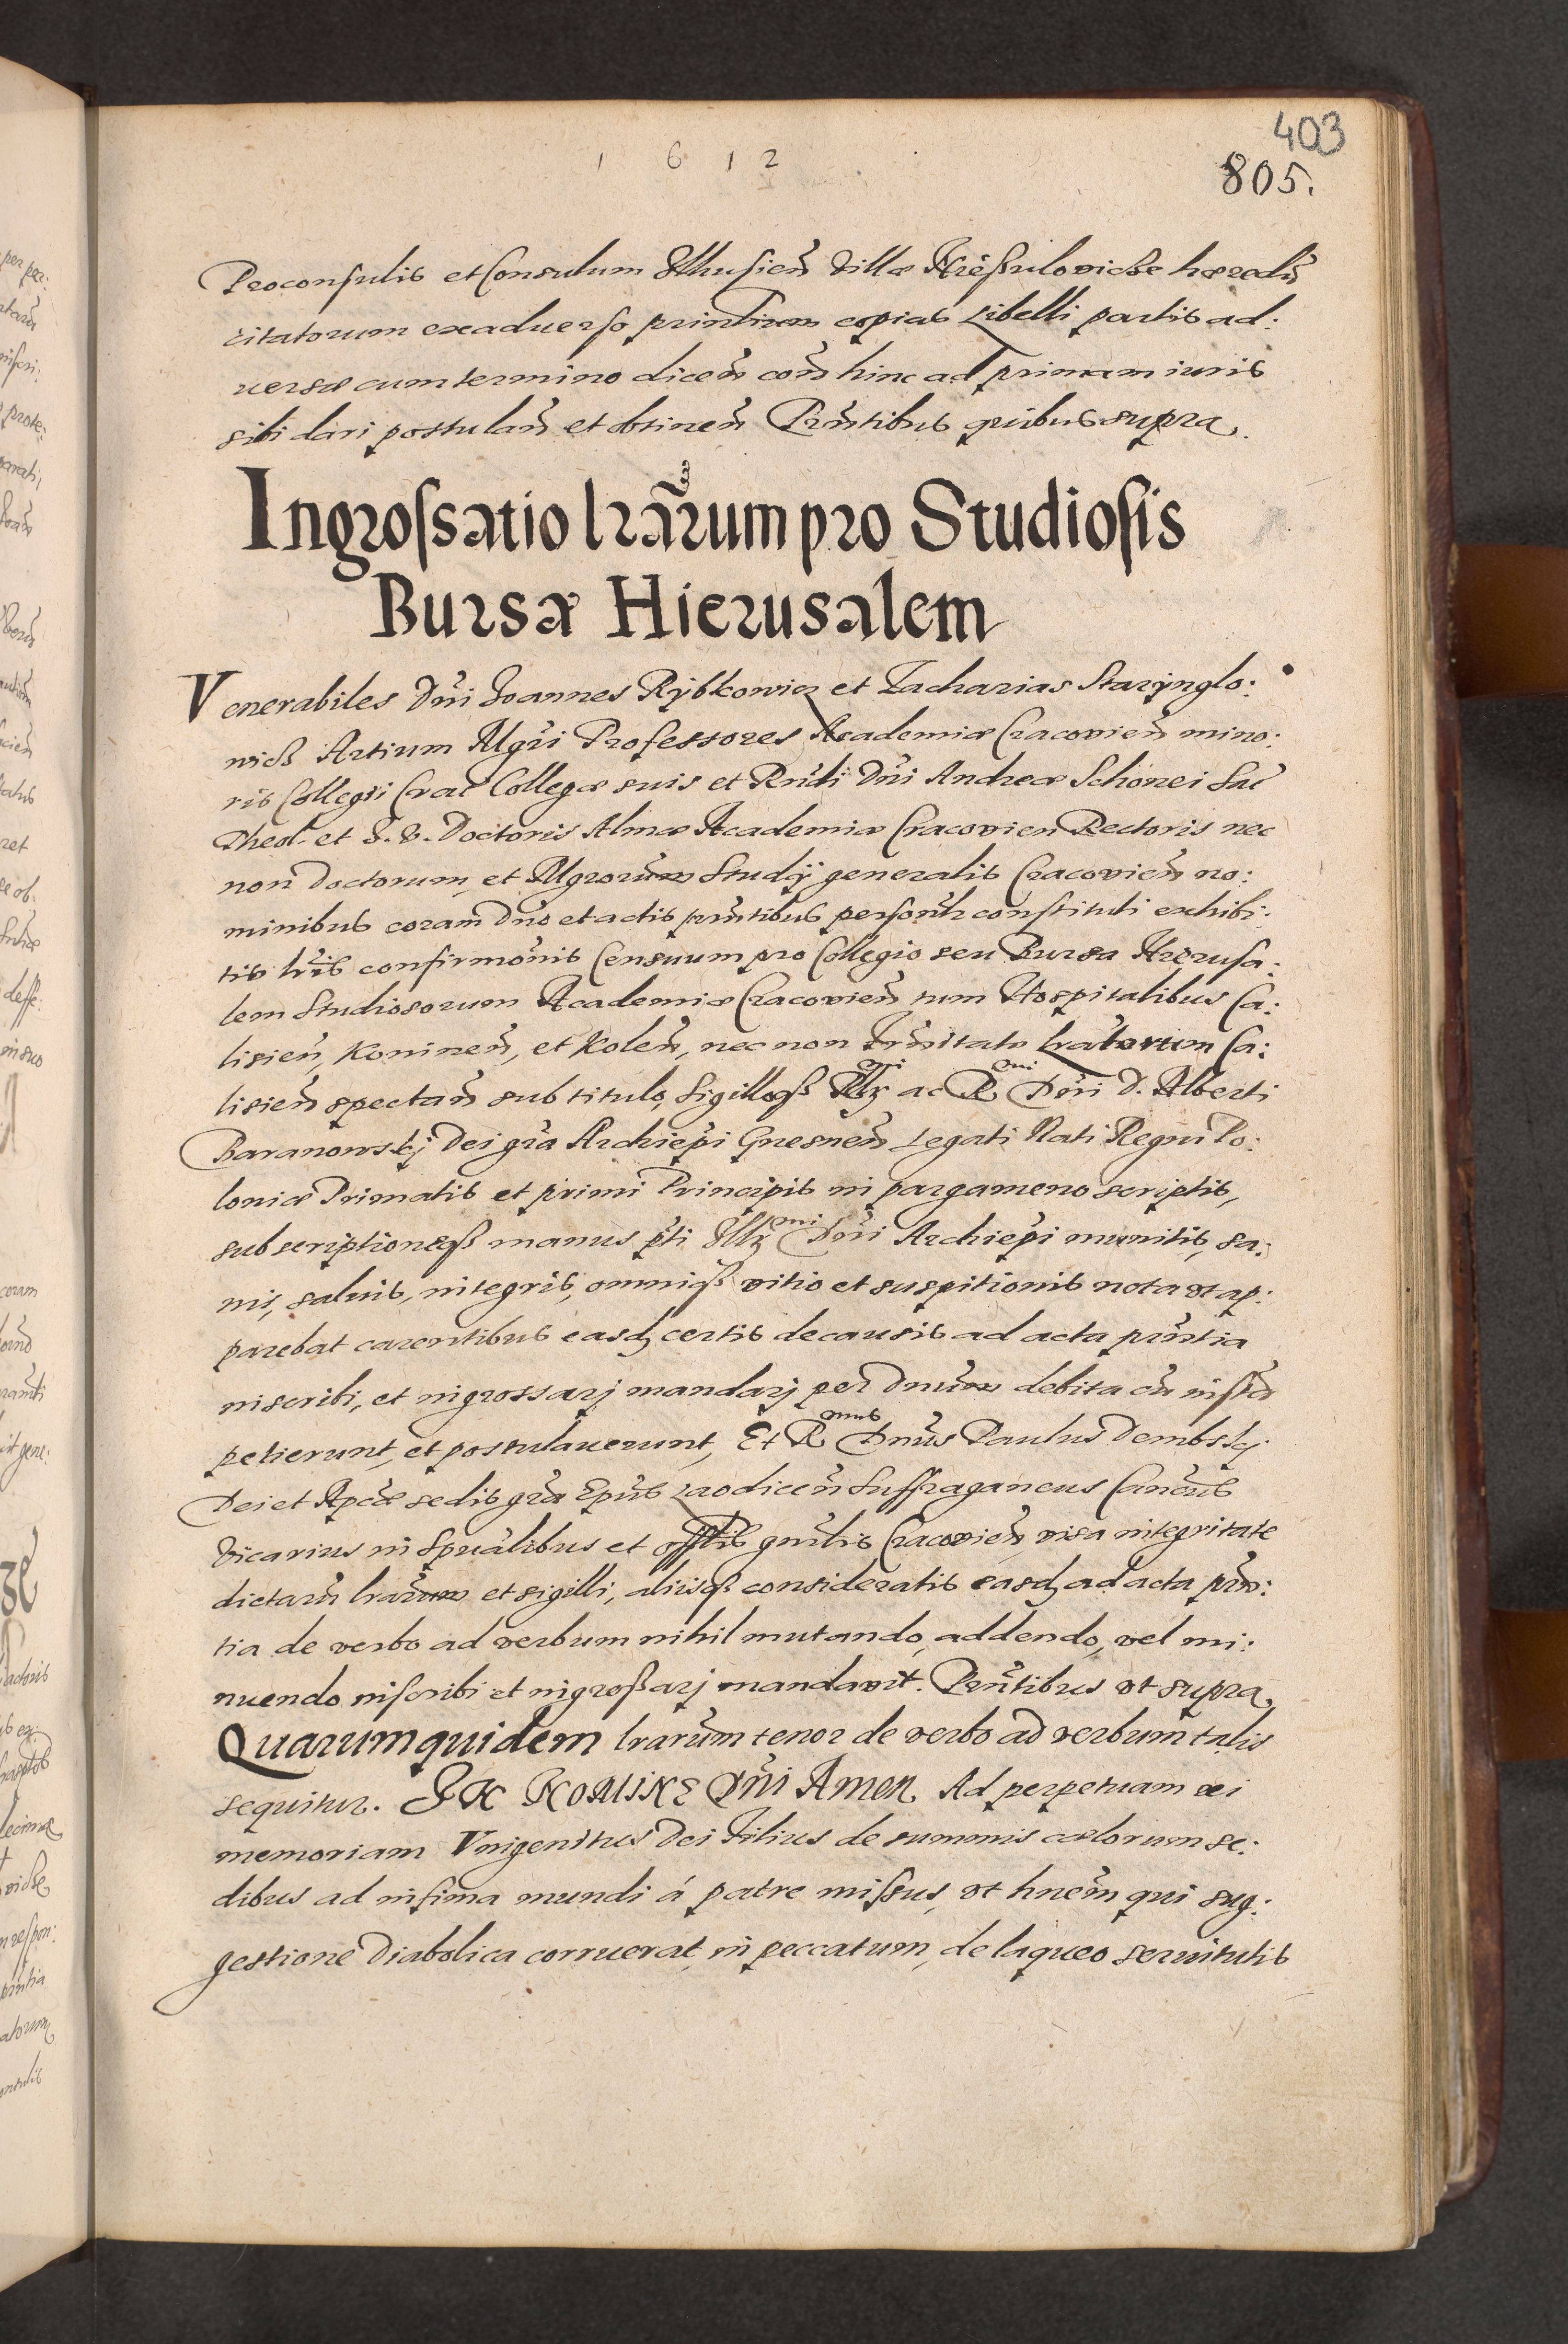 1612
403
805.
Proconsulis et Consulum Ilkusien̄ villæ hæredū
citatorum ex aduerso prn̄tium copias Libelli partis ad:
uersæ cum termino dicen̄ con̄ hinc ad primam iuris
sibi dari postulan̄ et obtinen̄ Prn̄tibus quibus supra.
Ingrossatio lrārum pro Studiosis
Bursæ Hierusalem
Venerabiles Dn̄i Joannes Rybkowicz et Zacharias Starÿnglo:
wicß Artium Mgr̄i Professores Academiæ Cracovien̄ mino:
ris Collegii Crac̄ Collegæ suis et Rn̄di Dn̄i Andreæ Schonei Sac̄
Theol. et J. V. Doctoris Almæ Academiæ Cracovien Rectoris nec
non Doctorum, et Mgrorūm Studÿ generalis Cracovien̄ no:
minibus coram Dn̄o et actis prn̄tibus personl̄r constituti exhibi:
tis lr̄is confirmōnis Censuum pro Collegio seu Bursa Hierusa:
lem Studiosorum Academiæ Cracovien̄ tum Hospitalibus Ca:
lisien̄, Koninen̄, et Kolen̄, nec non Frn̄itate Ca:
lisien̄ spectan̄ sub titulo, Sigilloqß Illmi ac Rmi Dn̄i D. Alberti
Baranowskj Dei grā Archiep̄i Gnesnen̄ Legati Nati Regni Po:
loniæ Primatis et primi Principis in pargameno scriptis,
subscriptioneqß manus pt̄i Illmi Dn̄i Archiep̄i munitis, sa:
nis, saluis, integris, omniqß vitio et suspitionis nota vt ap:
parebat carentibus easdȝ certis de causis ad acta prn̄tia
inscribi, et ingrossarj mandarj per Dnūm debita cū instā
petierunt, et postulauerunt, Et Rmus Dnūs Paulus Dembskj
Dei et Apcæ sedis grā Ep̄us Laodicen̄ Suffraganeus Canc̄us
Vicarius in Spuālibus et offlis gnālis Cracovien̄, visa integritate
dictarū lrarūm et sigilli, aliisqß consideratis easdȝ ad acta prn̄:
tia de verbo ad verbum nihil mutando, addendo, vel mi:
nuendo inscribi et ingroßarj mandavit. Prn̄tibus vt supra.
Quarumquidem lrarūm tenor de verbo ad verbum talis
sequitur. IN NOMINE Dn̄i Amen. Ad perpetuam rei
memoriam Vnigenitus Dei Filius de summis cælorum se:
dibus ad infima mundi á patre missus, vt hn̄em qui sug:
gestione Diabolica corruerat, in peccatum, de laqueo seruitutis